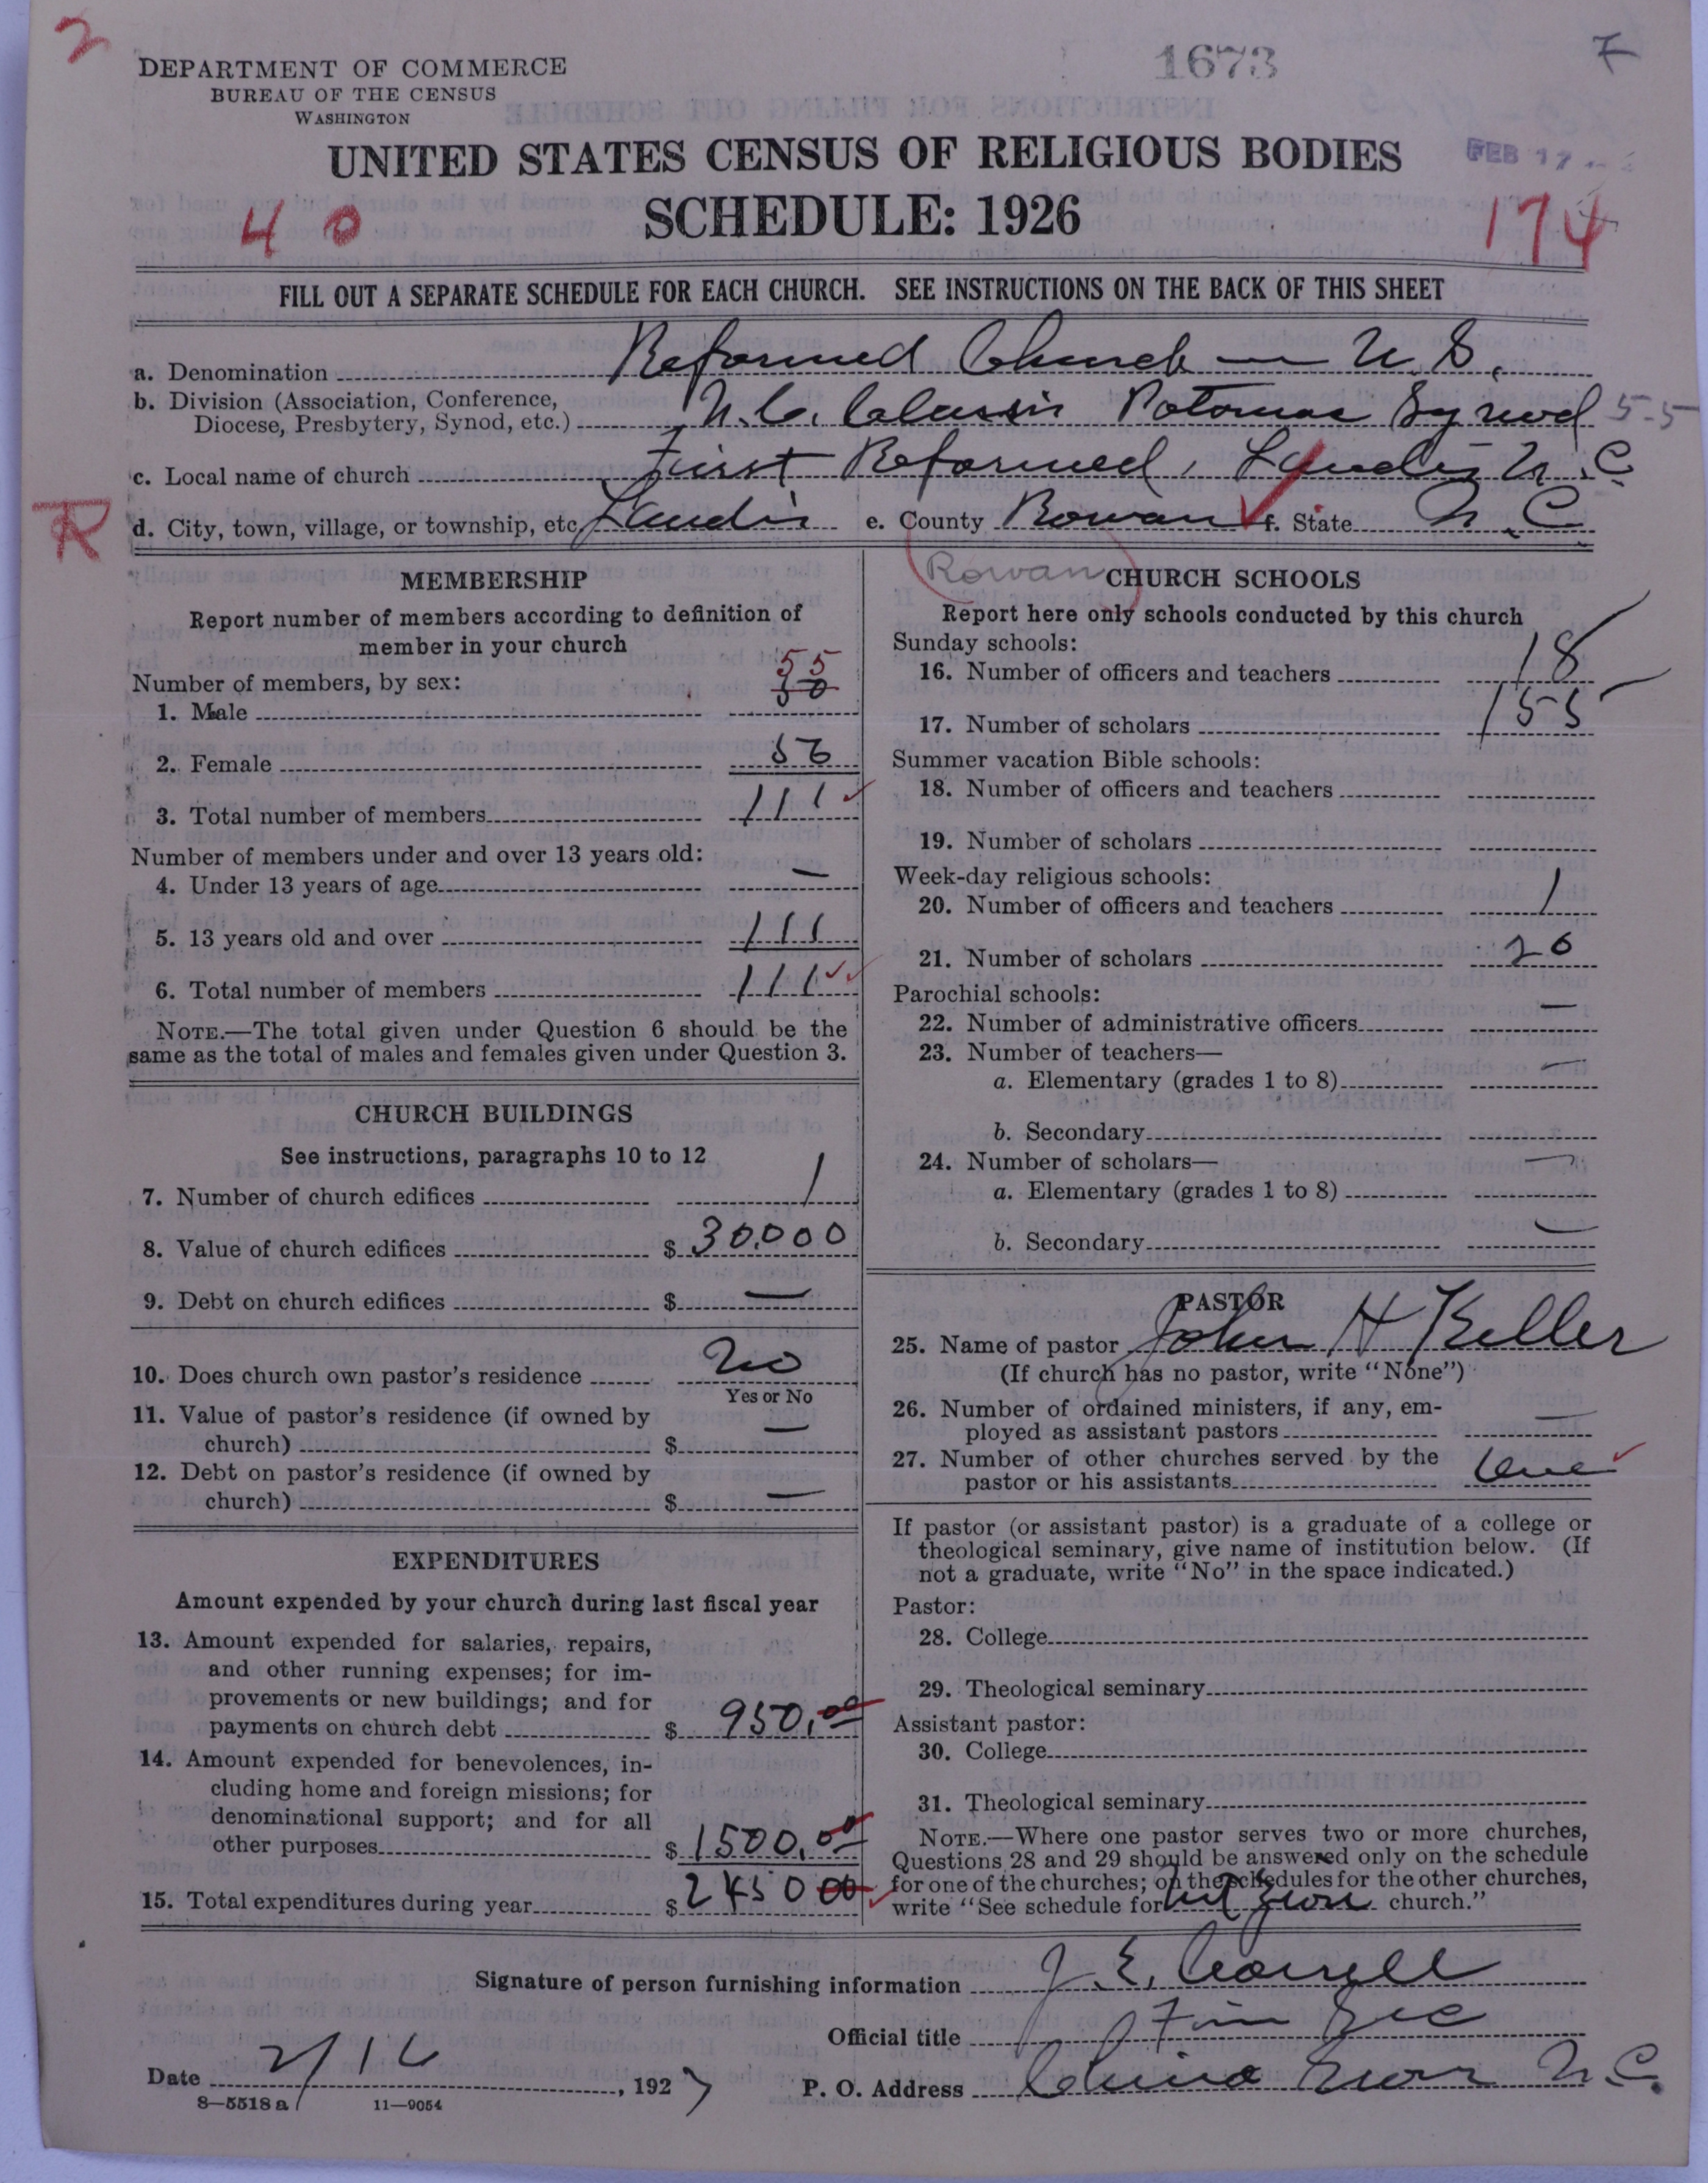 2
DEPARTMENT OF COMMERCE
BUREAU OF THE CENSUS
WASHINGTON
1673
7
UNITED STATES CENSUS OF RELIGIOUS BODIES
FEB 17
SCHEDULE: 1926
40
174
FILL OUT A SEPARATE SCHEDULE FOR EACH CHURCH. SEE INSTRUCTIONS ON THE BACK OF THIS SHEET
a. Denomination Reformed Church — U.S.
b. Division (Association, Conference, Diocese, Presbytery, Synod, etc.) N.C. Classis Potomac Synod 5-5
c. Local name of church First Reformed, Landis N.C.
R
d. City, town, village, or township, etc Landis e. County Rowan f. State N.C.
Rowan
MEMBERSHIP
Report number of members according to definition of
member in your church
Number of members, by sex:
55
1. Male 50
2. Female 56
3. Total number of members 111
Number of members under and over 13 years old:
4. Under 13 years of age —
5. 13 years old and over 111
6. Total number of members 111
NOTE.—The total given under Question 6 should be the
same as the total of males and females given under Question 3.
CHURCH BUILDINGS
See instructions, paragraphs 10 to 12
7. Number of church edifices 1
8. Value of church edifices $ 30,000
9. Debt on church edifices $ —
10. Does church own pastor's residence No
Yes or No
11. Value of pastor's residence (if owned by
church) $ —
12. Debt on pastor's residence (if owned by
church) $ —
EXPENDITURES
Amount expended by your church during last fiscal year
13. Amount expended for salaries, repairs,
and other running expenses; for im-
provements or new buildings; and for
payments on church debt $ 950.00
14. Amount expended for benevolences, in-
cluding home and foreign missions; for
denominational support; and for all
other purposes $ 1500.00
15. Total expenditures during year $ 2450 00
CHURCH SCHOOLS
Report here only schools conducted by this church
Sunday schools:
16. Number of officers and teachers 18
17. Number of scholars 155
Summer vacation Bible schools:
18. Number of officers and teachers
19. Number of scholars
Week-day religious schools:
20. Number of officers and teachers 1
21. Number of scholars 20
Parochial schools:
22. Number of administrative officers —
23. Number of teachers—
a. Elementary (grades 1 to 8) —
b. Secondary
24. Number of scholars—
a. Elementary (grades 1 to 8) —
b. Secondary —
PASTOR
25. Name of pastor John H Keller
(If church has no pastor, write "None")
26. Number of ordained ministers, if any, em-
ployed as assistant pastors —
27. Number of other churches served by the
pastor or his assistants One
If pastor (or assistant pastor) is a graduate of a college or
theological seminary, give name of institution below. (If
not a graduate, write "No" in the space indicated.)
Pastor:
28. College
29. Theological seminary
Assistant pastor:
30. College
31. Theological seminary
NOTE.—Where one pastor serves two or more churches,
Questions 28 and 29 should be answered only on the schedule
for one of the churches; on the schedules for the other churches,
write "See schedule for Mt Zion church."
Signature of person furnishing information J. E. Correll
Official title Fin Sec
Date 2/16, 1927
P. O. Address China Grove N.C.
8—5518 a
11—9054